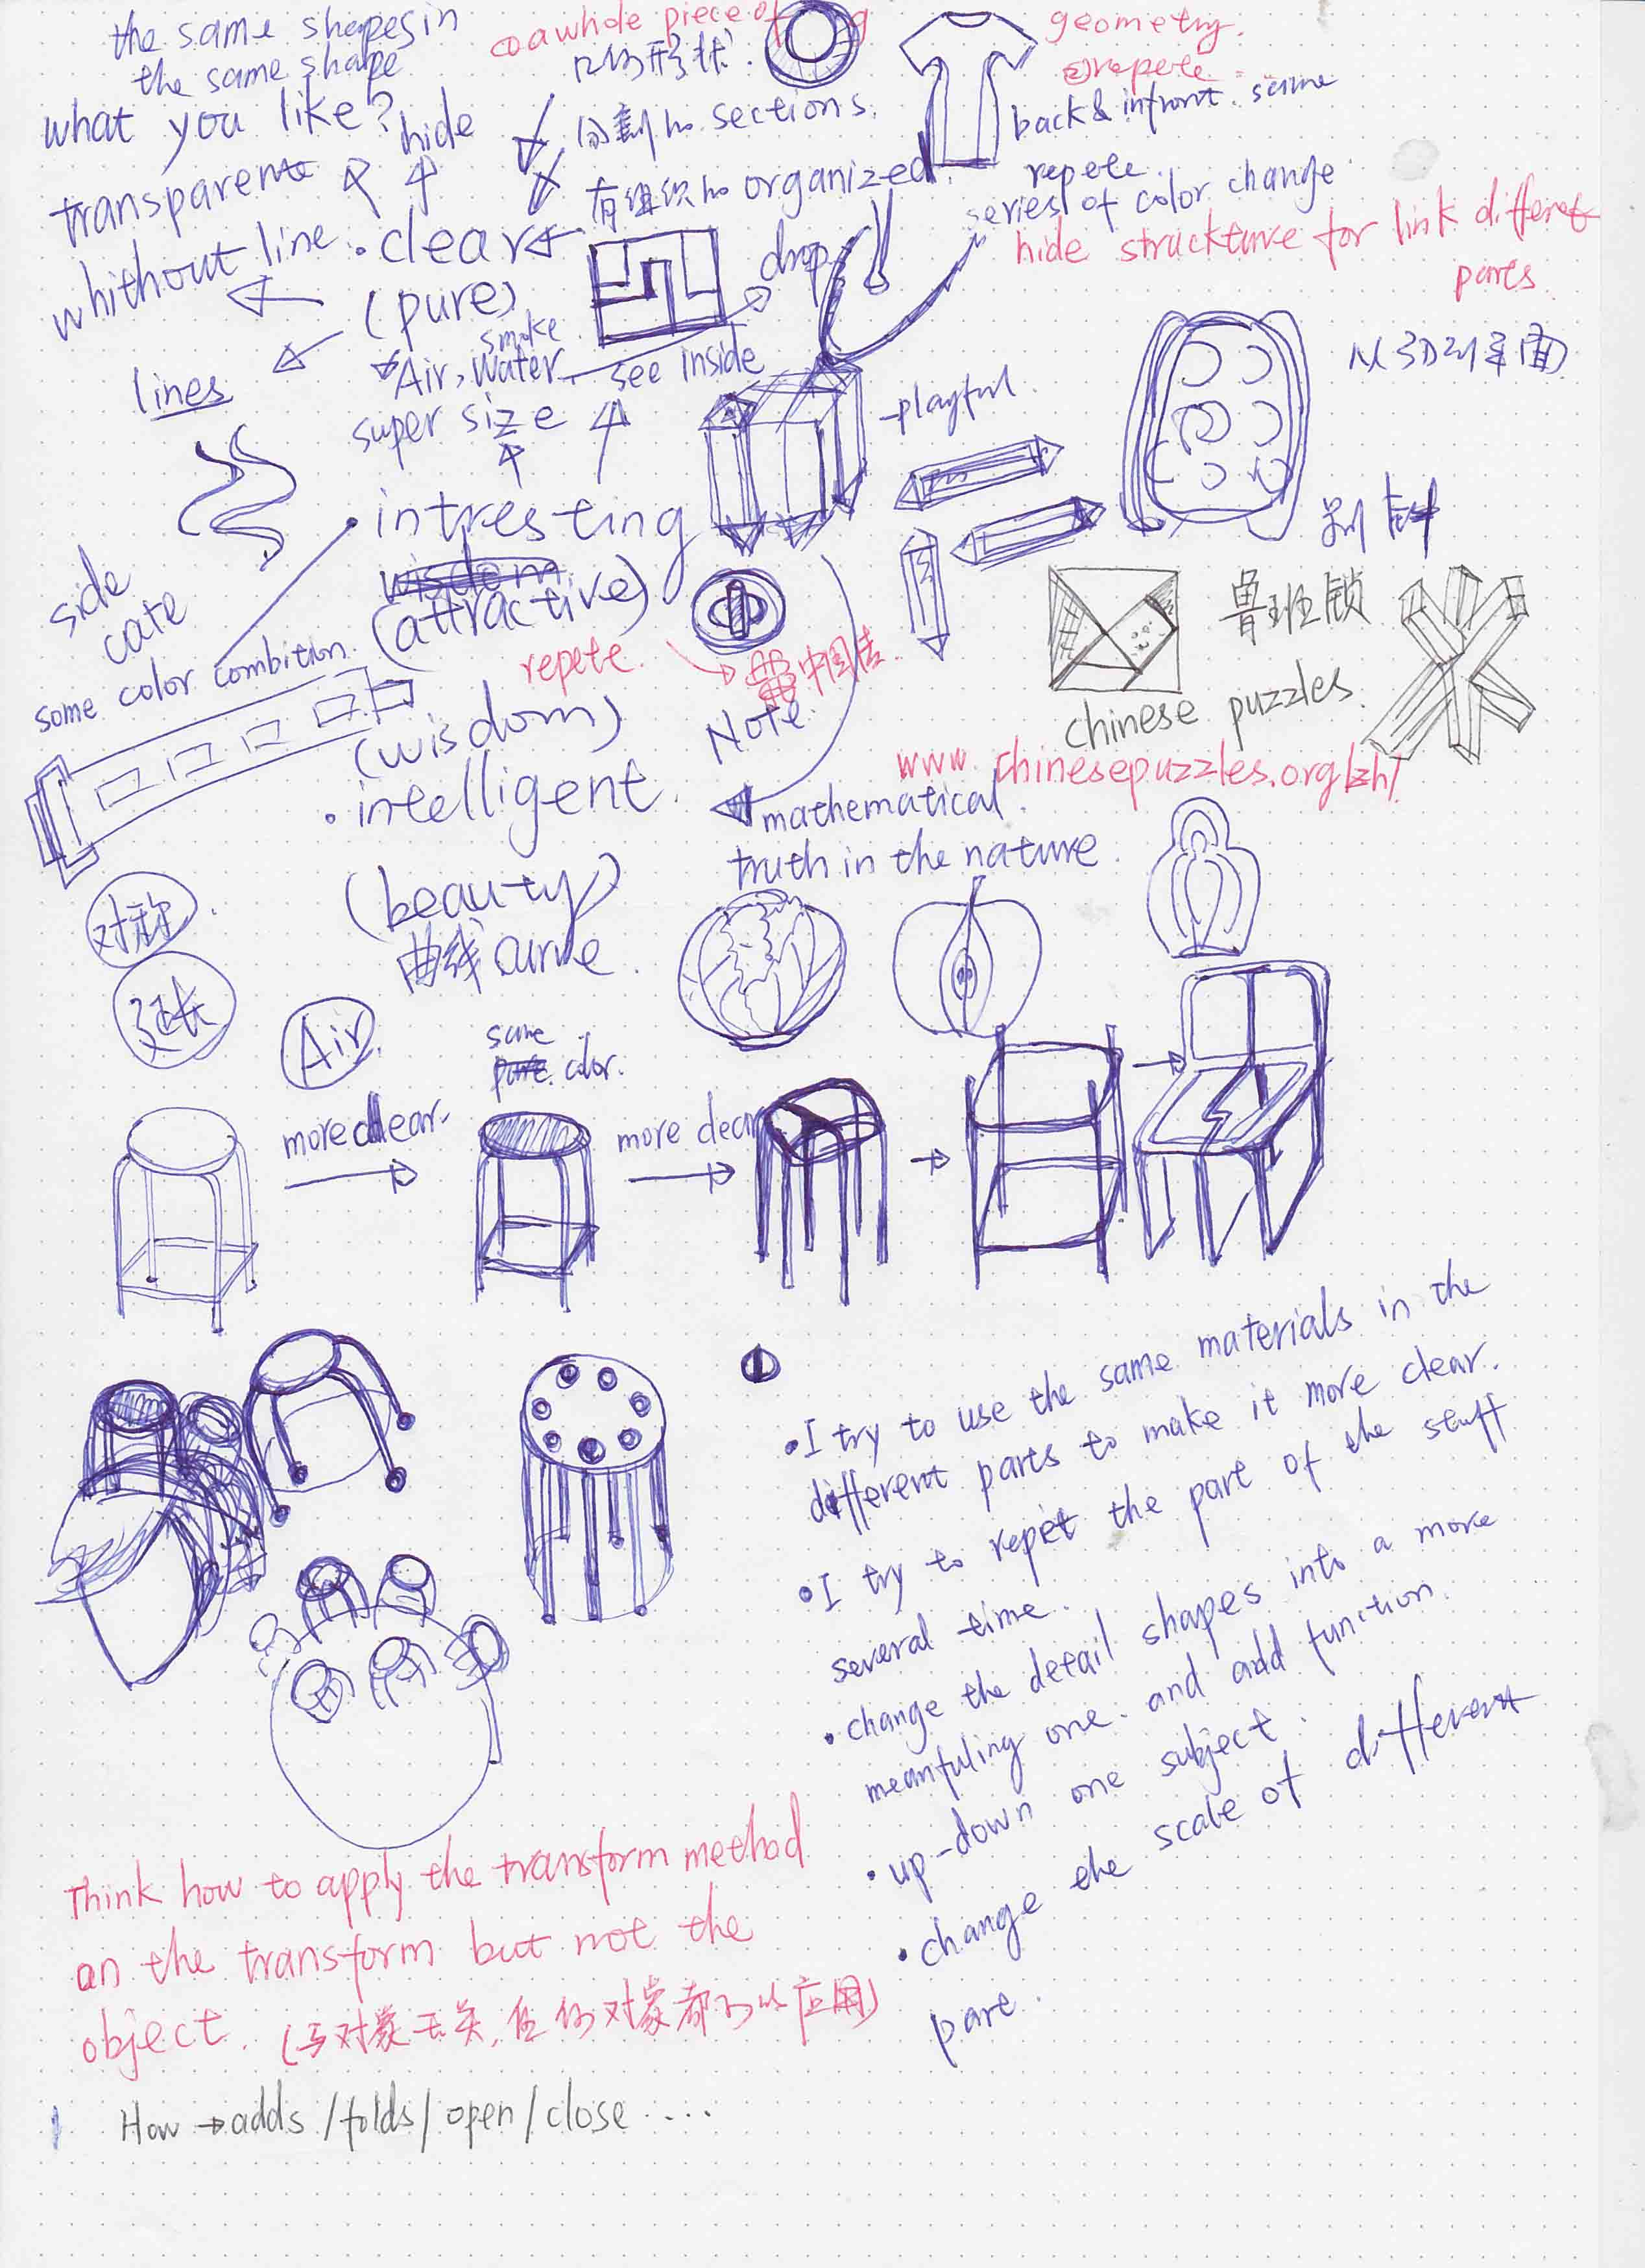 the same shapes in
the same shape
what you like?
hide
transparent
whithout line
clear
(pure)
lines
smoke
Air, water
see inside
drop
super size
a whole piece of
形状
分割 sections.
有组织 organized.
geometry.
repete
back & infront. same
repete
series of color change
hide struckture for link different
parts
从3D到平面
playful.
intresting
(attractive)
side
cate
some color combition.
repete.
中国
Note.
鲁班锁
chinese puzzles.
www.chinesepuzzles.org/zh/
(wisdom)
intelligent.
mathematical
truth in the nature.
(beauty)
曲线 curve.
对称
延长
Air.
same
color.
more clear.
more clear
•I try to use the same materials in the
different parts to make it more clear.
•I try to repet the part of the stuff
several time.
•change the detail shapes into a more
meanfuling one. and add function.
•up-down one subject.
•change the scale of different
part.
Think how to apply the transform method
on the transform but not the
object. (与对象无关,任何对象都可以应用)
How → adds /folds/ open/close ....